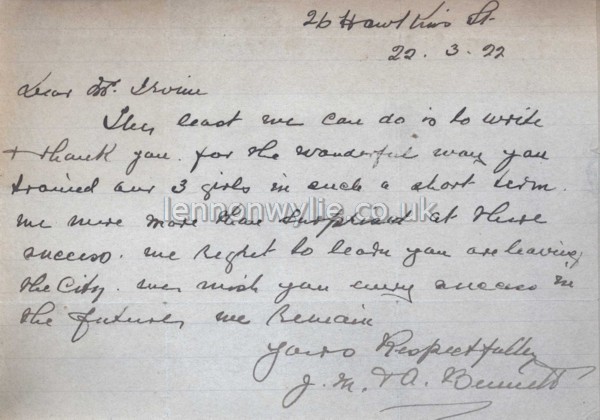 26 Hawkins St.
22. 3. 22
Dear Mr. Irvine
They least we can do is to write
+ thank you. for the wonderful way you
trained our 3 girls in such a short term.
we were more than surprised at there
lennonwylie.co.uk
success. we regret to learn you are leaving
the City. we wish you every success in
the future, we Remain
Yours Respectfully
J. M. + A. Bennett